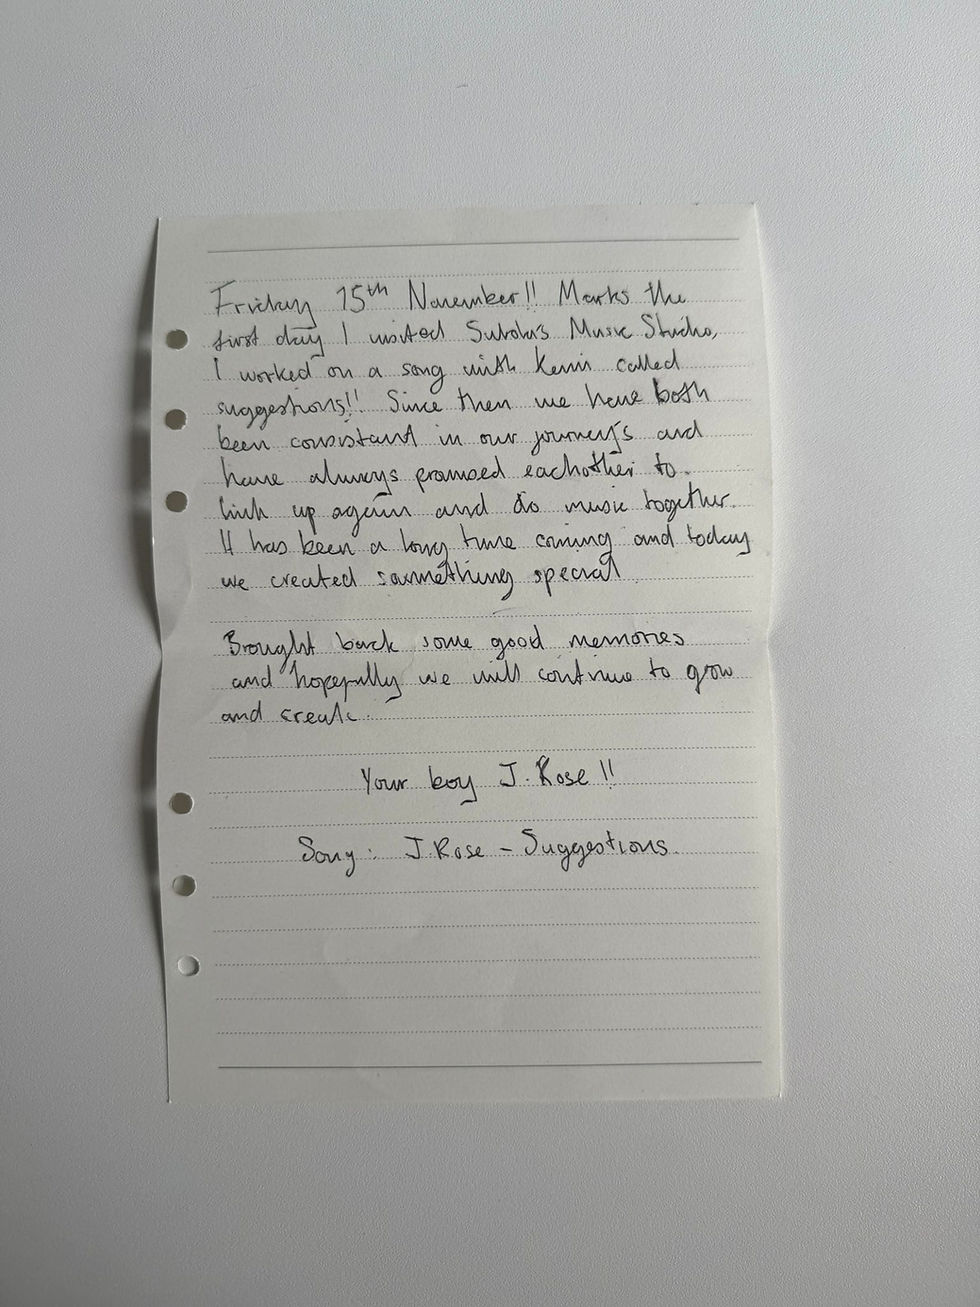 Friday 15th November!! Marks the
first day I visited Music Studio,
I worked on a song with Kevin called
suggestions!! Since then we have both
been consistant in our journey's and
have always promised eachother to
link up again and do music together.
It has been a long time coming and today
we created something special
Brought back some good memories
and hopefully we will continue to grow
and create.
Your boy J.Rose !!
Song: J.Rose - Suggestions.